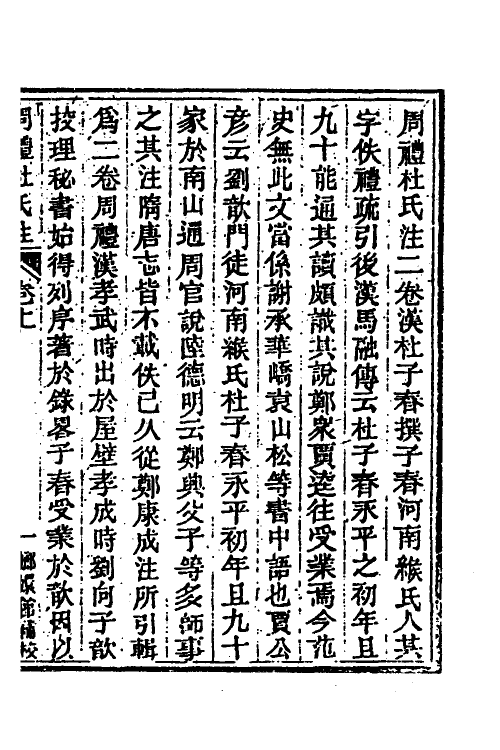 周禮杜氏注二卷漢杜子春撰子春河南緱氏人其
字佚禮疏引後漢馬融傳云杜子春永平之初年且
九十能通其讀頗識其說鄭衆賈逵往受業焉今范
史無此文當係謝承華嶠袁山松等書中語也賈公
彥云劉歆門徒河南緱氏杜子春永平初年且九十
家於南山通周官說陸德明云鄭興父子等多師事
之其注隋唐志皆不載佚已久從鄭康成注所引輯
爲二卷周禮漢孝武時出於屋壁孝成時劉向子歆
挍理秘書始得列序著於錄畧子春受業於歆因以
周禮杜氏注
卷上
一
嫏嬛館補校